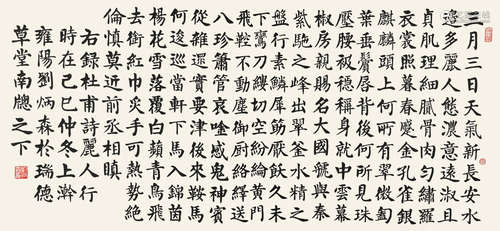 三月三日天氣新長安水
邊多麗人態濃意遠淑且
真肌理細膩骨肉勻繡羅
衣裳照暮春蹙金孔雀銀
麒麟頭上何所有翠微㔩
葉垂鬢脣背後何所見珠
壓腰衱穩稱身就中雲幕
椒房親賜名大國虢與秦
紫駞之峰出翠釜水精之
盤行素鱗犀箸厭飫久未
下鸞刀縷切空紛綸黃門
飛鞚不動塵御廚絡繹送
八珍簫管哀唫感鬼神賓
從雜遝實要津後來鞍馬
何逡巡當軒下馬入錦茵
楊花雪落覆白蘋青鳥飛
去銜紅巾炙手可熱勢絕
倫慎莫近前丞相瞋
右録杜甫詩麗人行
時在己巳仲冬上澣
雍陽劉炳森於瑞德
草堂南牕之下